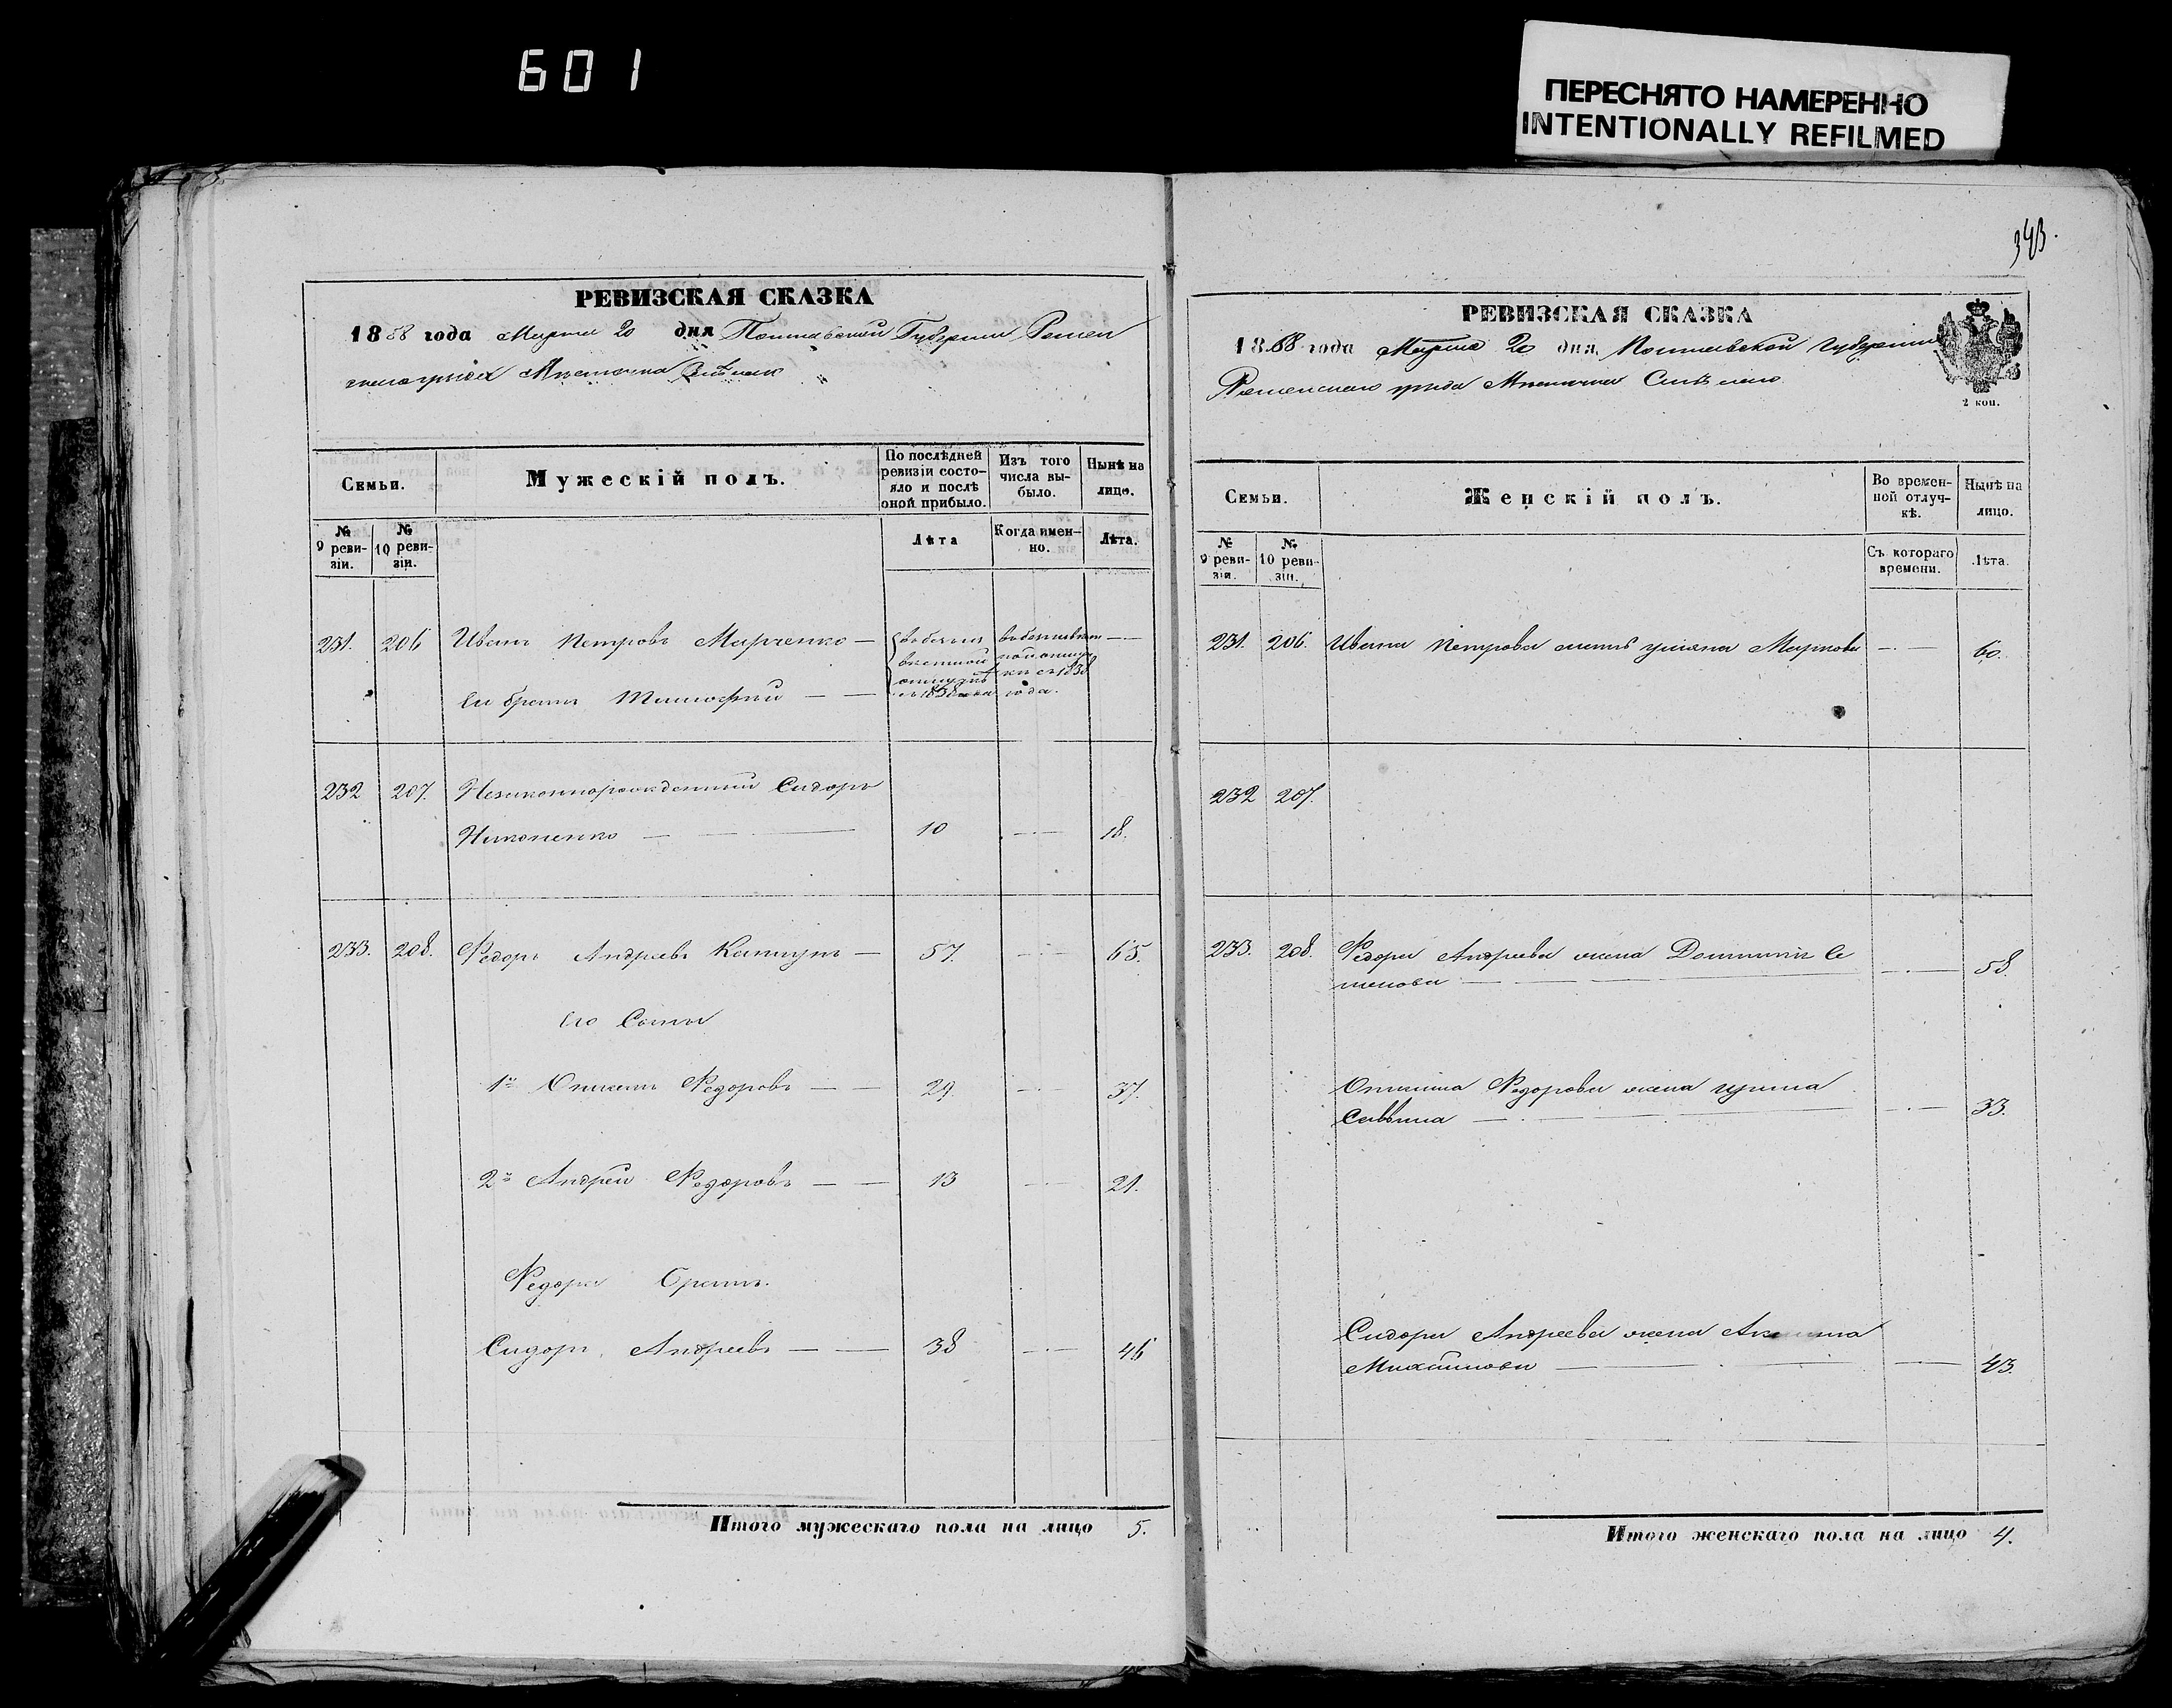 601
ПЕРЕСНЯТО НАМЕРЕННО
INTENTIONALLY REFILMED
343.
РЕВИЗСКАЯ СКАЗКА
1858 года Марта 20 дня Полтавской Губернии Ромен
скаго уезда Местечка
Семьи.
Мужескій полъ.
По послѣдней ревизіи состо-яло и послѣ оной прибыло.
Изъ того числа вы-было.
Нынѣ на лицо.
№ 9 реви-зіи.
№ 10 реви-зіи.
Лѣта
Когда имен-но.
Лѣта.
231. 206 Иванъ Петровъ Марченко —
Его братъ Тимофий — —
с 1838 года.
232 207. Незаконнорожденный Сидоръ
Никоненко — 10 — 18.
233. 208. Федоръ Андреевъ — 57. — 65.
Его Сыны
1й Федоровъ — — 29. — 37.
2й Андрей Федоровъ — — 13 — 21.
Федора Братъ.
Сидоръ Андреевъ — — 38 — 46
Итого мужескаго пола на лицо 5.
РЕВИЗСКАЯ СКАЗКА
1858 года Марта 20 дня Полтавской Губернии
Роменскаго уезда Местечка
2 коп.
Семьи.
Женскій полъ.
Во времен-ной отлуч-кѣ.
Нынѣ на лицо.
№ 9 реви-зіи.
№ 10 реви-зіи.
Съ котораго времени.
Лѣта.
231. 206. Ивана Петрова жена Маркова — 60.
232 207.
233. 208. Федора Андреева жена Домникия Се
менова — 58.
Федорова жена
Саввина — 33.
Сидора Андреева жена
Михайлова — 43.
Итого женскаго пола на лицо 4.